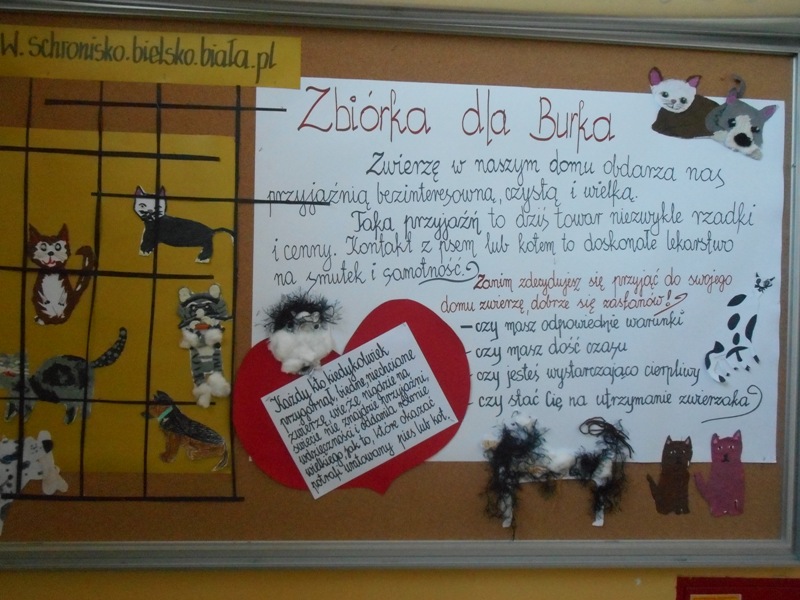 W.schronisko.bielsko.biała.pl
Zbiórka dla Burka
Zwierzę w naszym domu obdarza nas
przyjaźnią bezinteresowną, czystą i wielką.
Taka przyjaźń to dziś towar niezwykle rzadki
i cenny. Kontakt z psem lub kotem to doskonałe lekarstwo
na smutek i samotność.
Zanim zdecydujesz się przyjąć do swojego
domu zwierzę, dobrze się zastanów!
– czy masz odpowiednie warunki
– czy masz dość czasu
– czy jesteś wystarczająco cierpliwy
– czy stać Cię na utrzymanie zwierzaka?
Każdy kto kiedykolwiek
przygarnął biedne, niechciane
zwierzę wie, że nigdzie na
świecie nie znajdzie przyjaźni,
wdzięczności i oddania równie
wielkiego jak to, które okazać
potrafi uratowany pies lub kot.